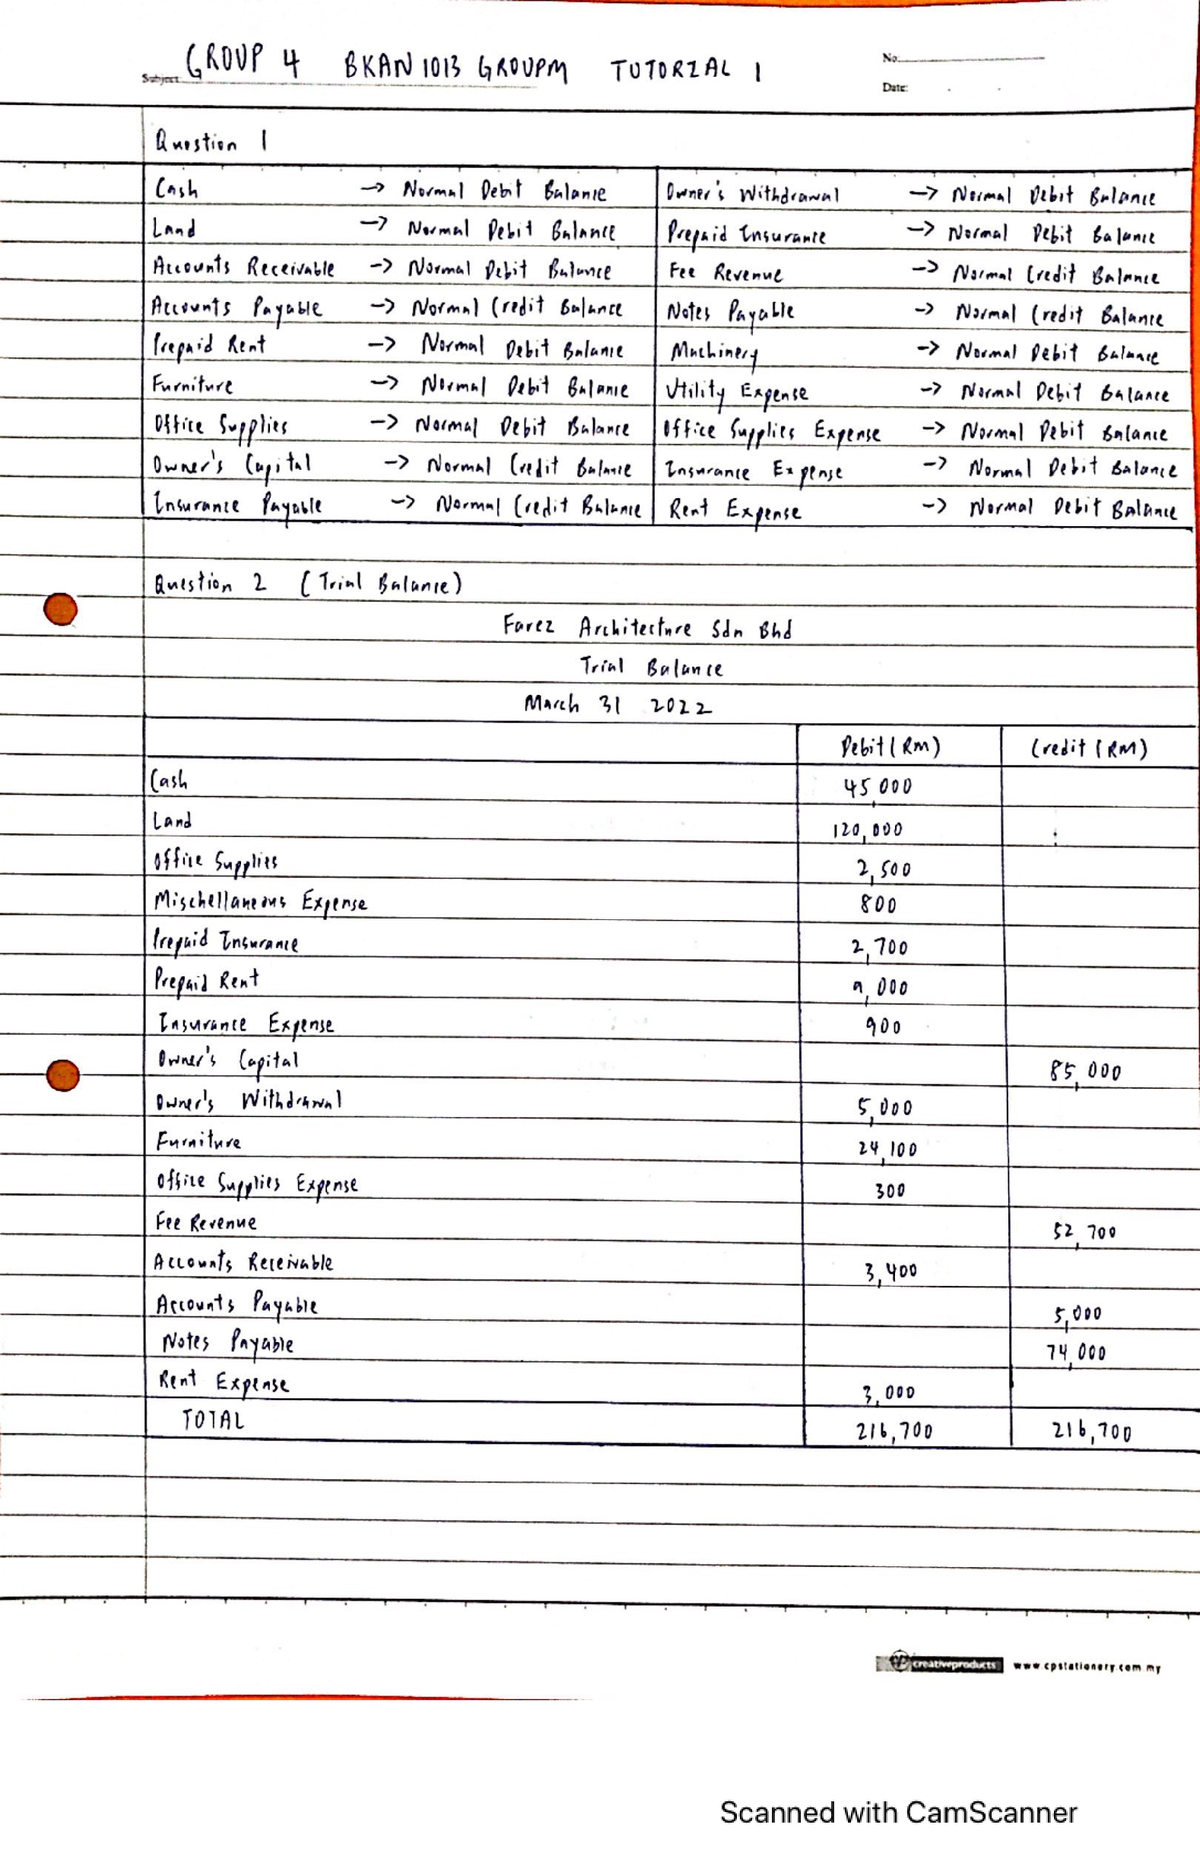 GROUP 4 BKAN 1013 GROUP M TUTORIAL 1
Subject:
No:
Date:
Question 1
Cash -> Normal Debit Balance
Land -> Normal Debit Balance
Accounts Receivable -> Normal Debit Balance
Accounts Payable -> Normal Credit Balance
Prepaid Rent -> Normal Debit Balance
Furniture -> Normal Debit Balance
Office Supplies -> Normal Debit Balance
Owner's Capital -> Normal Credit Balance
Insurance Payable -> Normal Credit Balance
Owner's Withdrawal -> Normal Debit Balance
Prepaid Insurance -> Normal Debit Balance
Fee Revenue -> Normal Credit Balance
Notes Payable -> Normal Credit Balance
Machinery -> Normal Debit Balance
Utility Expense -> Normal Debit Balance
Office Supplies Expense -> Normal Debit Balance
Insurance Expense -> Normal Debit Balance
Rent Expense -> Normal Debit Balance
Question 2 (Trial Balance)
Farez Architecture Sdn Bhd
Trial Balance
March 31 2022
Debit (RM) Credit (RM)
Cash 45,000
Land 120,000
Office Supplies 2,500
Mischellaneous Expense 800
Prepaid Insurance 2,700
Prepaid Rent 9,000
Insurance Expense 900
Owner's Capital 85,000
Owner's Withdrawal 5,000
Furniture 24,100
Office Supplies Expense 300
Fee Revenue 52,700
Accounts Receivable 3,400
Accounts Payable 5,000
Notes Payable 74,000
Rent Expense 3,000
TOTAL 216,700 216,700
creativeproducts www.cpstationery.com.my
Scanned with CamScanner